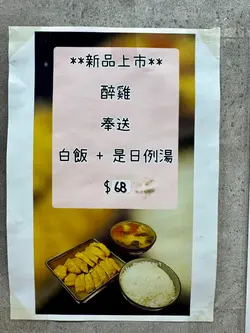 **新品上市**
醉雞
奉送
白飯 + 是日例湯
$68